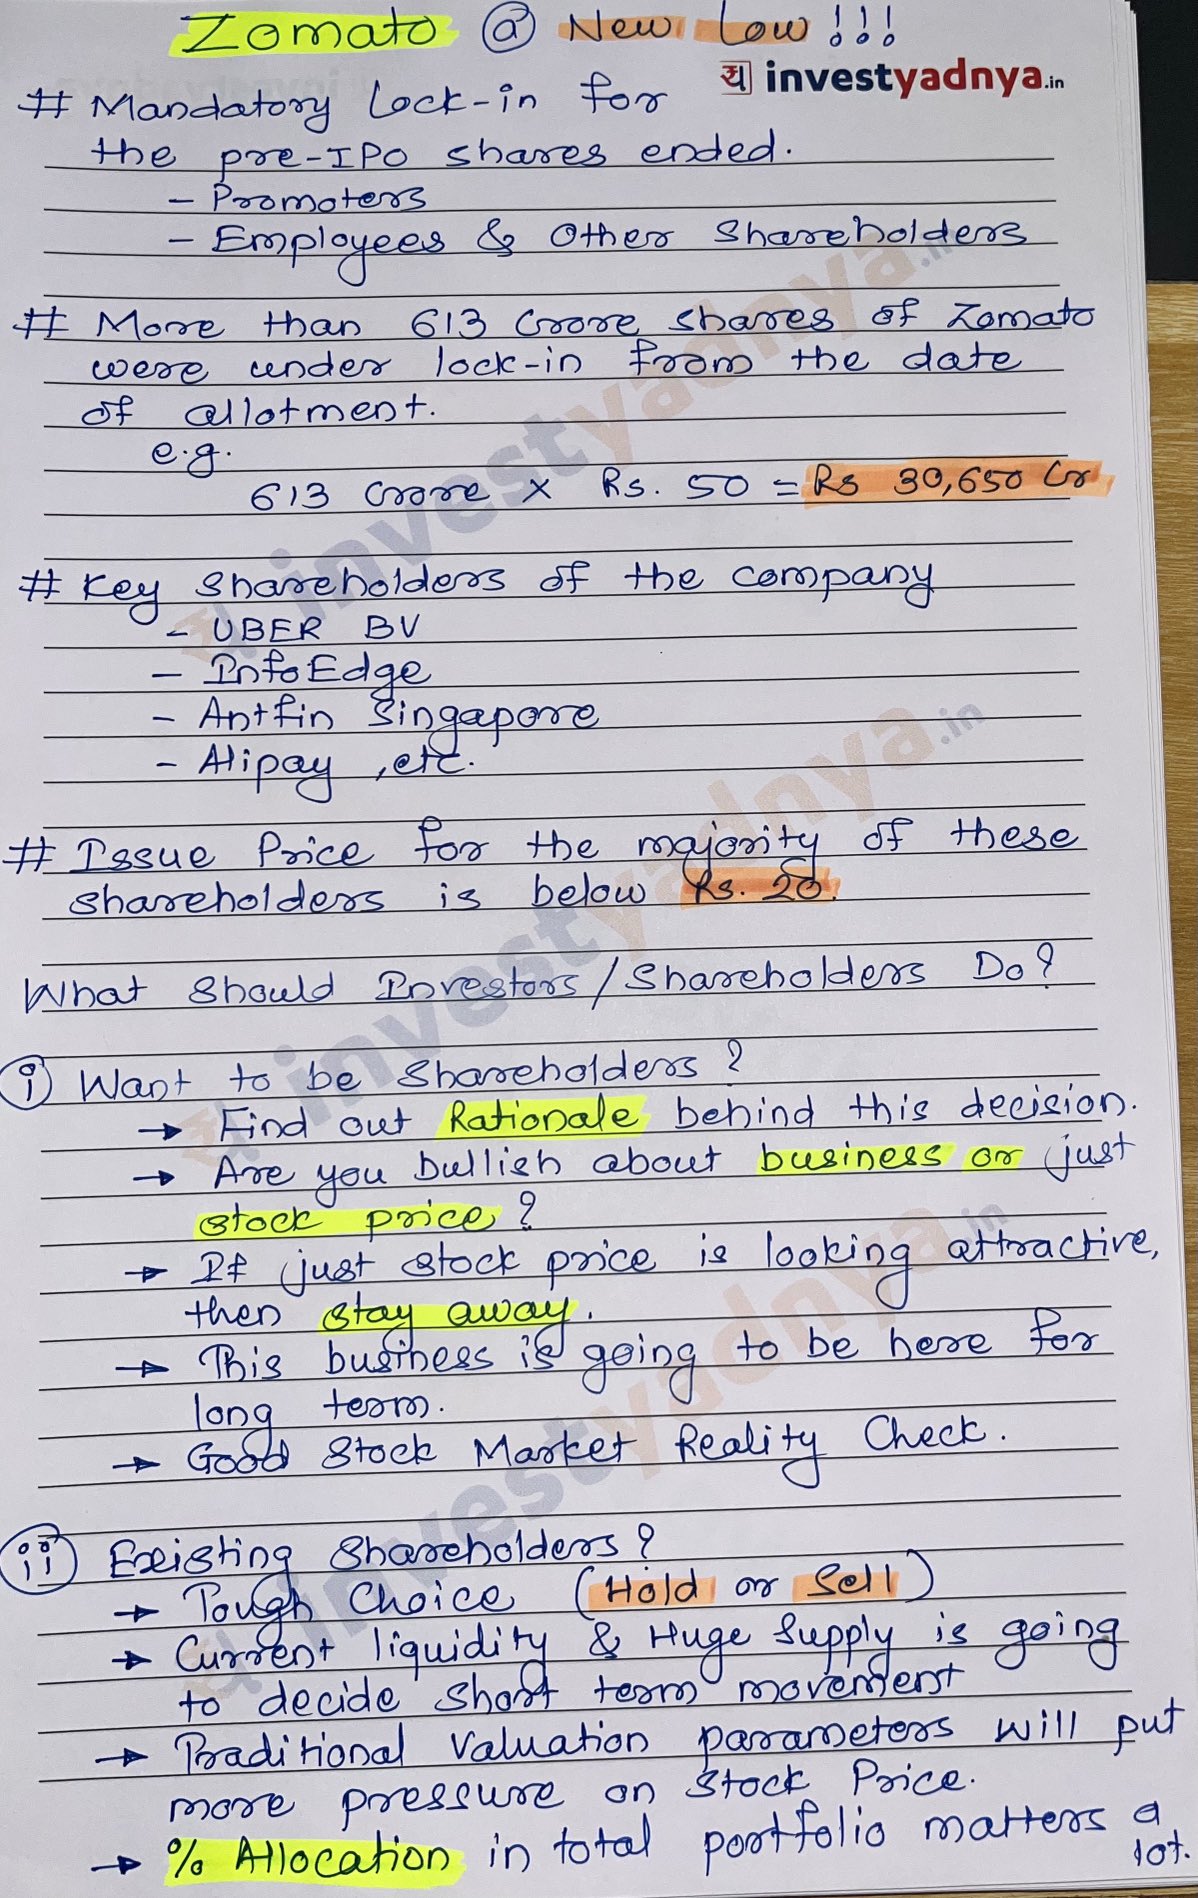 Zomato @ New Low !!!
य investyadnya.in
# Mandatory Lock-in for
the pre-IPO shares ended.
- Promoters
- Employees & Other Shareholders
# More than 613 Crore shares of Zomato
were under lock-in from the date
of allotment.
e.g.
613 crore x Rs. 50 = Rs 30,650 Cr
# Key Shareholders of the company
- UBER BV
- InfoEdge
- Antfin Singapore
- Alipay, etc.
# Issue Price for the majority of these
shareholders is below Rs. 20.
What Should Investors/Shareholders Do?
i) Want to be Shareholders?
→ Find out Rationale behind this decision.
→ Are you bullish about business or just
stock price?
→ If just stock price is looking attractive,
then stay away.
→ This business is going to be here for
long term.
→ Good Stock Market Reality Check.
ii) Existing Shareholders?
→ Tough Choice (Hold or Sell)
→ Current liquidity & Huge Supply is going
to decide short term movement
→ Traditional Valuation parameters will put
more pressure on Stock Price.
→ % Allocation in total portfolio matters a
lot.
investyadnya.in
investyadnya.in
investyadnya.in